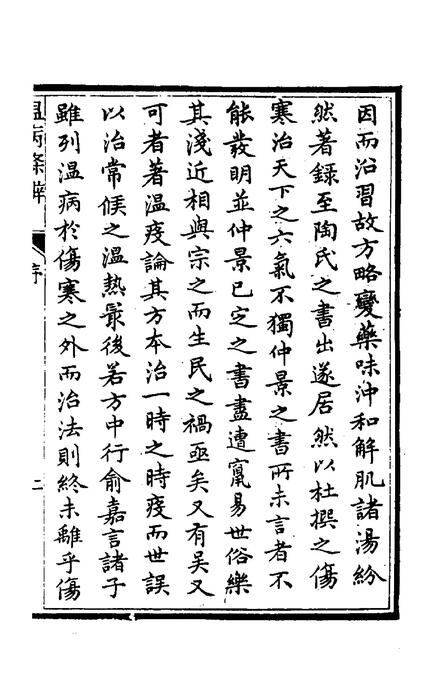 因而沿習故方略變藥味沖和解肌諸湯紛
然著錄至陶氏之書出遂居然以杜撰之傷
寒治天下之六氣不獨仲景之書所未言者不
能發明並仲景已定之書盡遭竄易世俗樂
其淺近相與宗之而生民之禍亟矣又有吳又
可者著温疫論其方本治一時之時疫而世誤
以治常候之温熱最後若方中行俞嘉言諸子
雖列温病於傷寒之外而治法則終未離乎傷
温病條辨
序
二